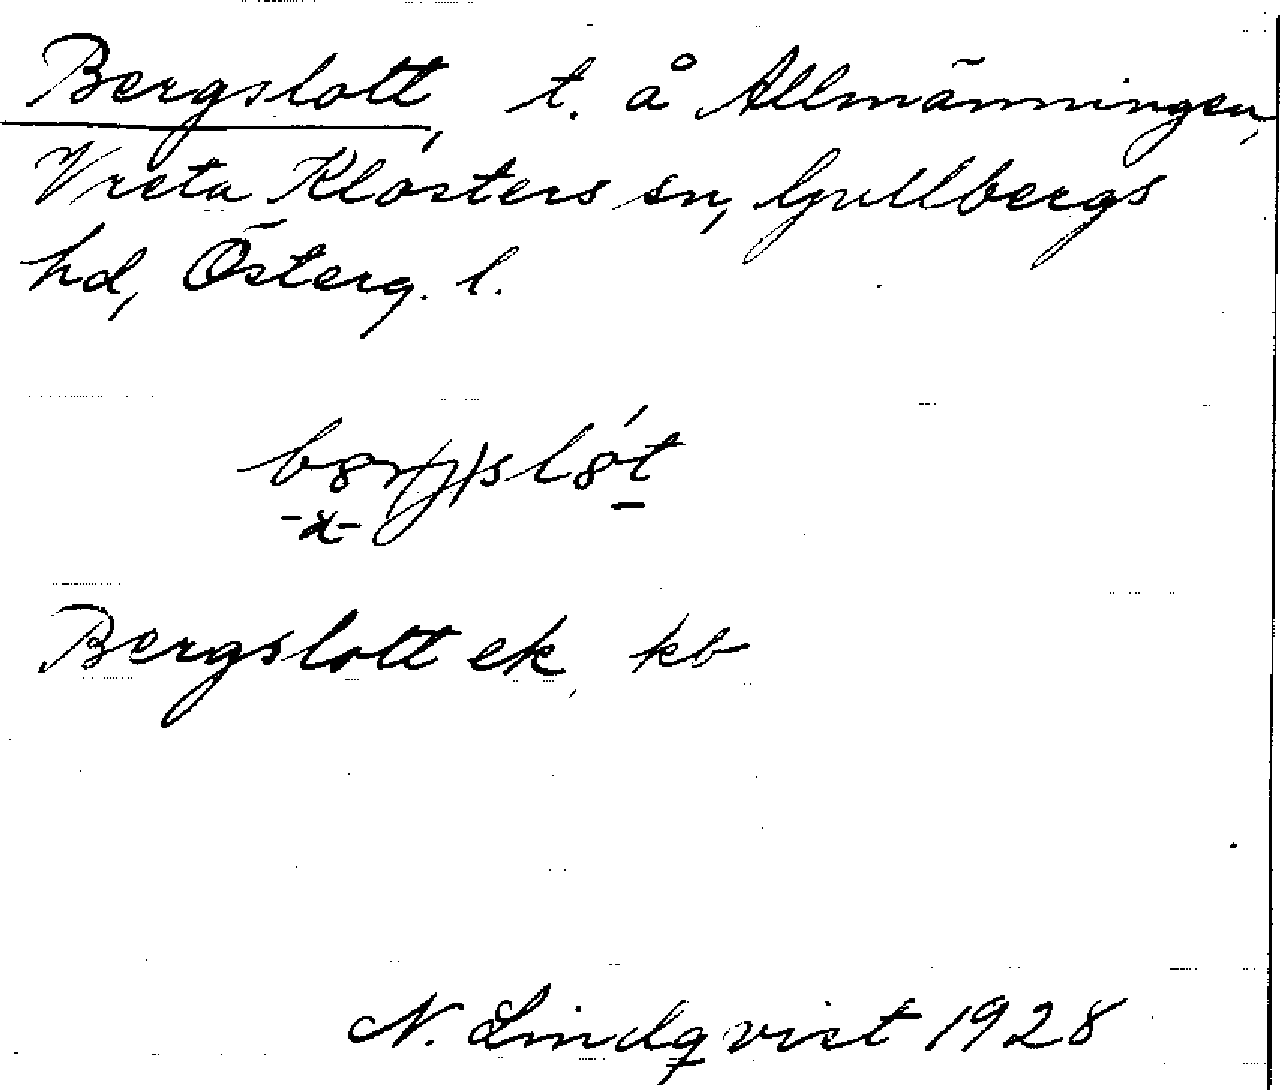 Bergslott, t. å Allmänningen,
Vreta Klosters sn, Gullbergs
hd, Österg. l.
Bergslott ek, kb
N. Lindqvist 1928